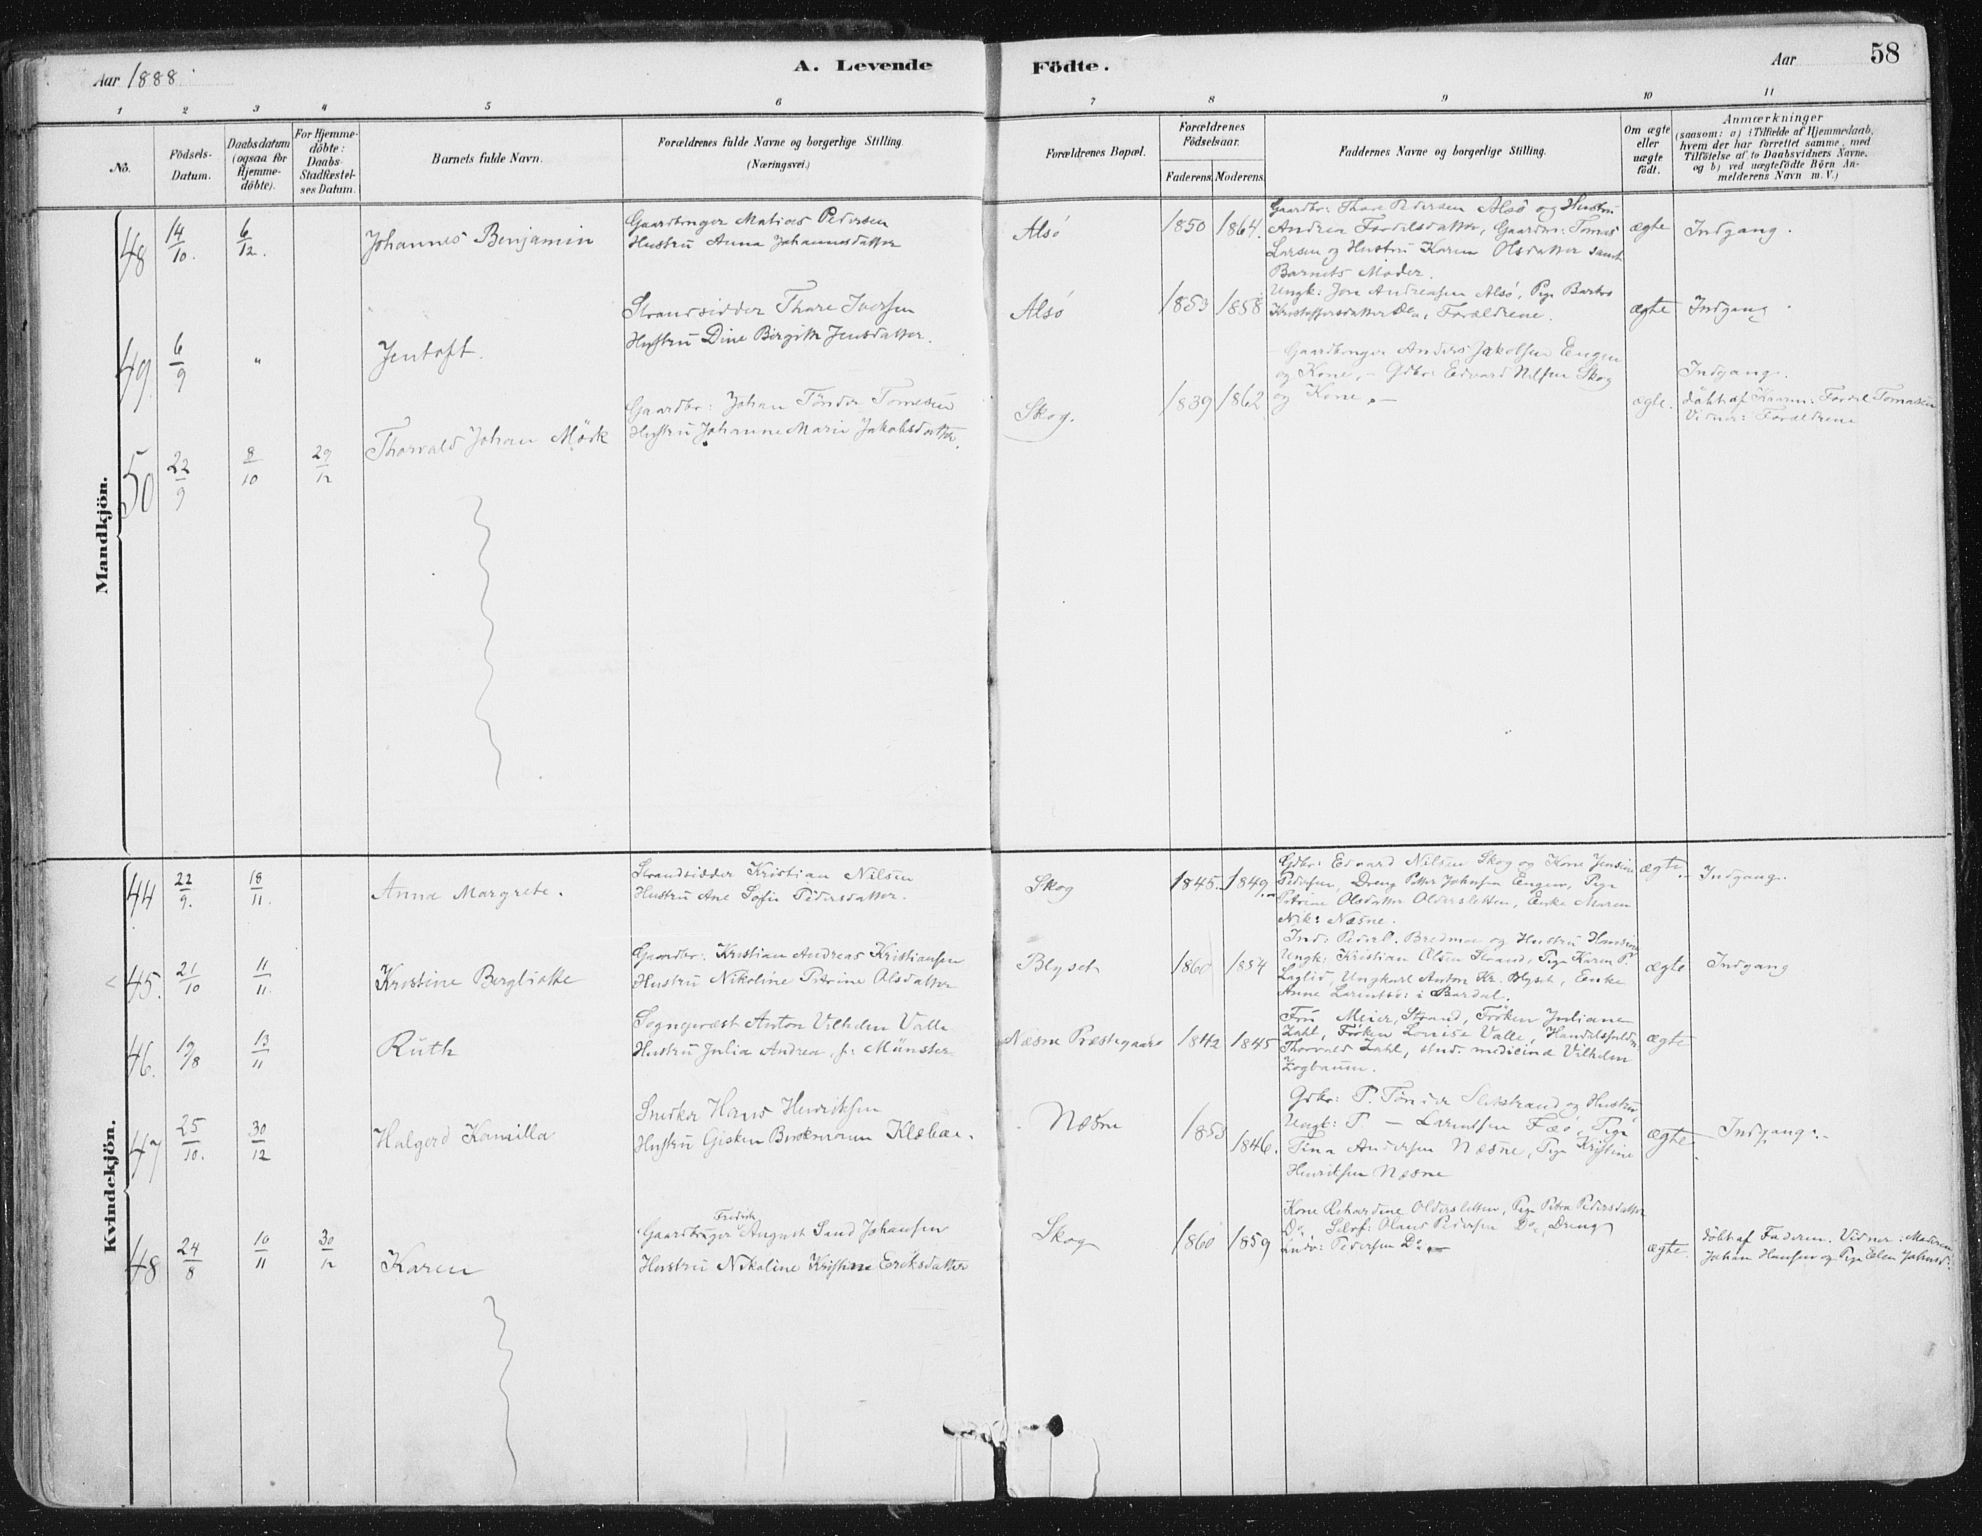 Aar 1888.
A. Levende Födte.
Aar
58
1 2 3 4 5 6 7 8 9 10 11
No.
Födsels-Datum.
Daabsdatum (ogsaa for Hjemme-döbte).
For Hjemme-döbte: Daabs-Stadfæstel-ses Datum.
Barnets fulde Navn.
Forældrenes fulde Navne og borgerlige Stilling. (Næringsvei.)
Forældrenes Bopæl.
Forældrenes Födselsaar.
Faderens. Moderens.
Faddernes Navne og borgerlige Stilling.
Om ægte eller uægte födt.
Anmærkninger
(saasom: a) i Tilfælde af Hjemmedaab, hvem der har forrettet samme, med Tilföielse af to Daabsvidners Navne. og b) ved uægtefödte Börn An-melderens Navn m. V.)
Mandkjön.
48 14/10. 6/12. Johannes Benjamin
Gaardbruger Matias Pedersen
Hustru Anna Johannesdatter
Alsö 1850 1864.
Gaardbr: Thore Pedersen Alsö og Hustru
Andrea Fordelsdatter, Gaardbr: Tomas
Larsen og Hustru Karen Olsdatter samt
Barnets Moder.
ægte Indgang.
49. 6/9 " Jentoft.
Strandsidder Thore Iversen
Hustru Dine Birgitte Jensdatter.
Alsö 1853 1858
Ungk: Jon Andreassen Alsö, Pige Barbro
Kristoffersdatter Do, Forældrene.
ægte Indgang.
50 22/9 8/10 29/12 Thorvald Johan Mörk
Gaardbr: Johan Tönder Tomesen
Hustru Johanne Marie Jakobsdatter.
Skog. 1839 1862
Gaardbruger Anders Jakobsen Engen
og Kone, - Gdbr: Edvard Nilsen Skog
og Kone. -
ægte.
Indgang.
döbt af Fordel Tomasen
Vidner: Forældrene
Kvindekjön.
44 22/9. 18/11. Anna Margrete.
Strandsidder Kristian Nilsen
Hustru Ane Sofie Pedersdatter.
Skog 1845. 1849.
Gdbr: Edvard Nilsen Skog og Kone Jensine
Pedersen, Dreng Petter Johnsen Engen, Pige
Petrine Olsdatter Oldersletten, Enke Maren
Nik: Næsne.
ægte. Indgang.
45. 21/10 11/11. Kristine Bergliotte
Gaardbr: Kristian Andreas Kristiansen
Hustru Nikoline Petrine Olsdatter
Blyset 1860 1854
Inds: Peder P. Bredmo og Hustru
Ungk: Kristian Olsen Strand, Pige Karen P.
Ungkarl Anton Kr. Blyset, Enke
Anne Larentsd: i Bardal.
ægte Indgang
46. 19/8 13/11 Ruth
Sogneprest Anton Vilhelm Valle
Hustru Julia Andrea, f: Münster
Næsne Præstegaard 1842 1845
Fru Meier, Strand, Fröken Juliane
Zahl, Fröken Louise Valle, Handelsfuldm.
Thorvald Zahl, stud. medicina Vilhelm
Zogbaum.
ægte
47 25/10. 30/12 Halgerd Kamilla
Snedker Hans Henriksen
Hustru Gisken Klæboe.
Næsne 1853 1846.
Gdbr: P. Tönder Slotstrand og Hustru,
Ungk: P. - Larentsen Fæö, Pige
Tina Andersen Næsne, Pige Kristine
Henriksen Næsne
ægte Indgang.
48 24/8 10/11 30/12 Karen
Gaardbruger Fredrik August Sand Johansen
Hustru Nikoline Kristine Eriksdatter
Skog 1860 1859
Kone Rikardine Oldersletten, Pige Petra Pedersdatter
Do, Selvf: Hans Pedersen Do, Dreng
Pedersen Do. -
ægte.
döbt af Faderen. Vidner: Moderen,
Johan Hansen og Pige Elen Johnsd.